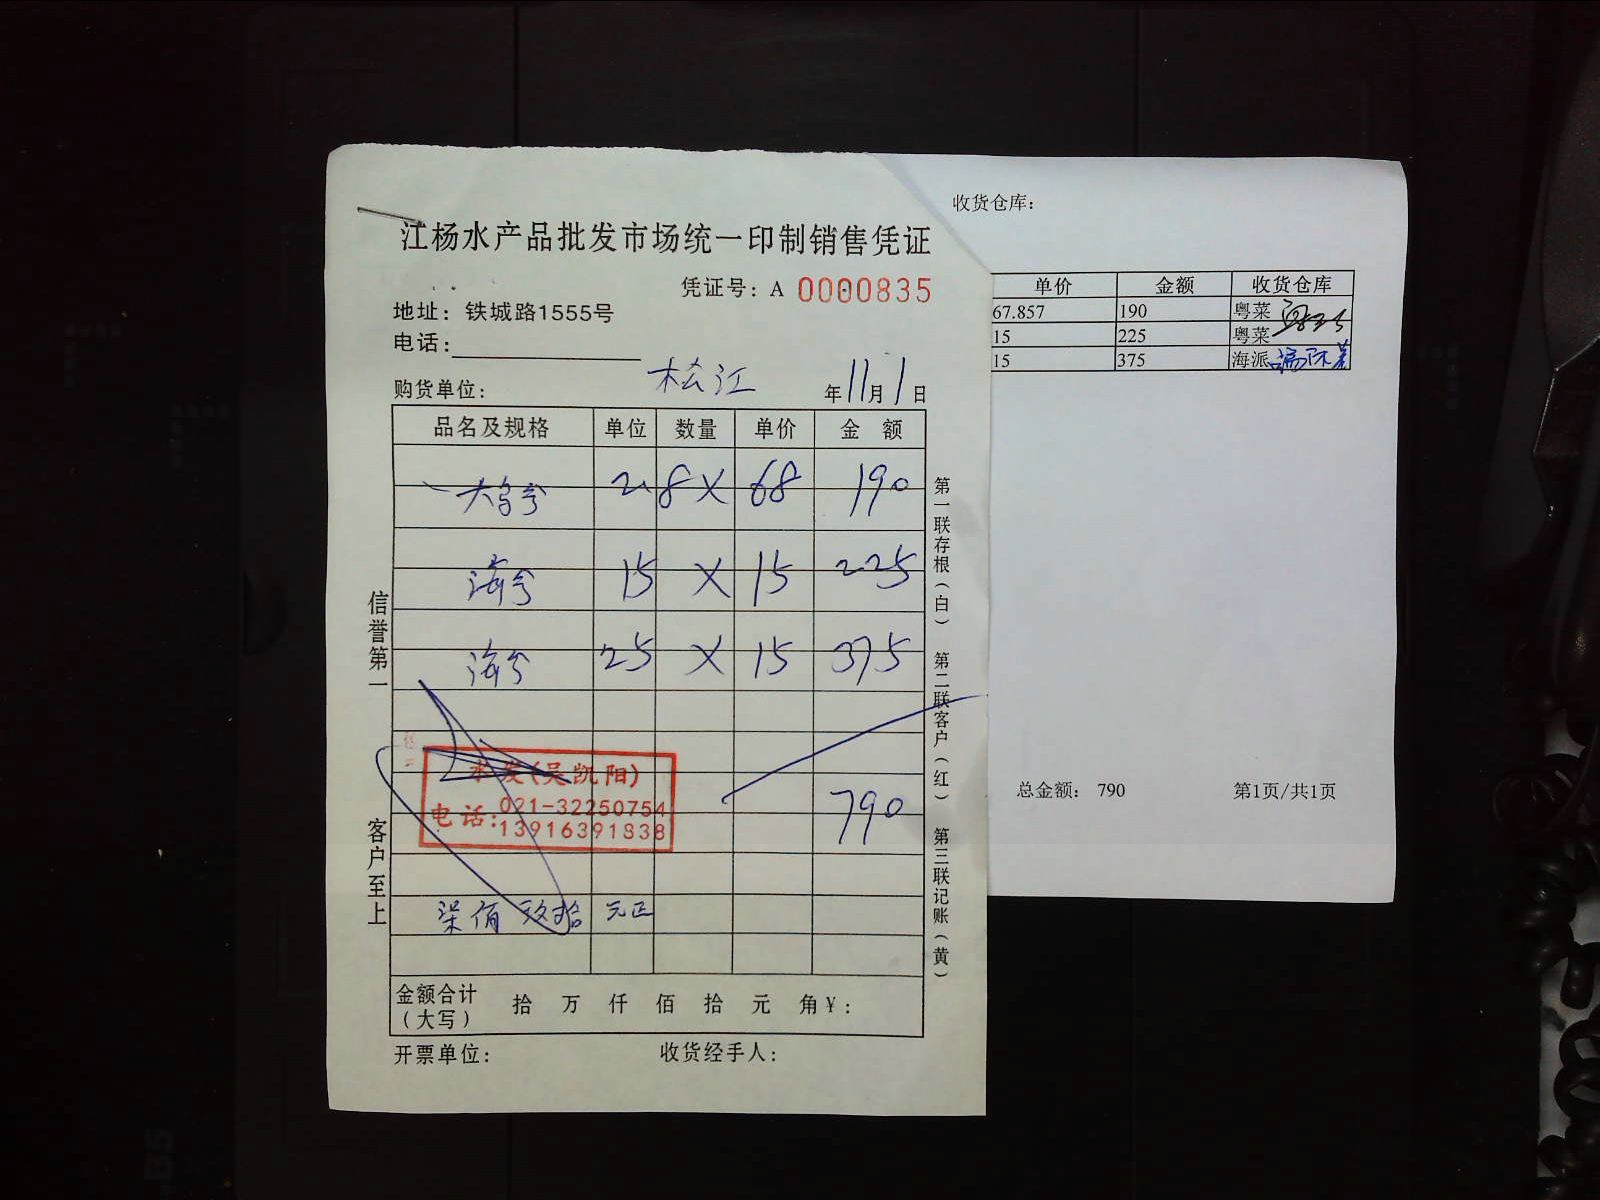 江杨水产品批发市场统一印制销售凭证
凭证号：A 0000835
地址：铁城路1555号
电话：
购货单位： 松江 年11月1日
品名及规格 单位 数量 单价 金 额
2.8 X 68 190
15 X 15 225
25 X 15 375
790
(吴凯阳)
电话：021-32250754
13916391838
柒佰玖拾 元正
金额合计（大写） 拾 万 仟 佰 拾 元 角￥：
开票单位： 收货经手人：
信誉第一
客户至上
第一联存根（白） 第二联客户（红） 第三联记账（黄）
收货仓库：
单价 金额 收货仓库
67.857 190 粤菜
15 225 粤菜
15 375 海派
总金额： 790 第1页/共1页